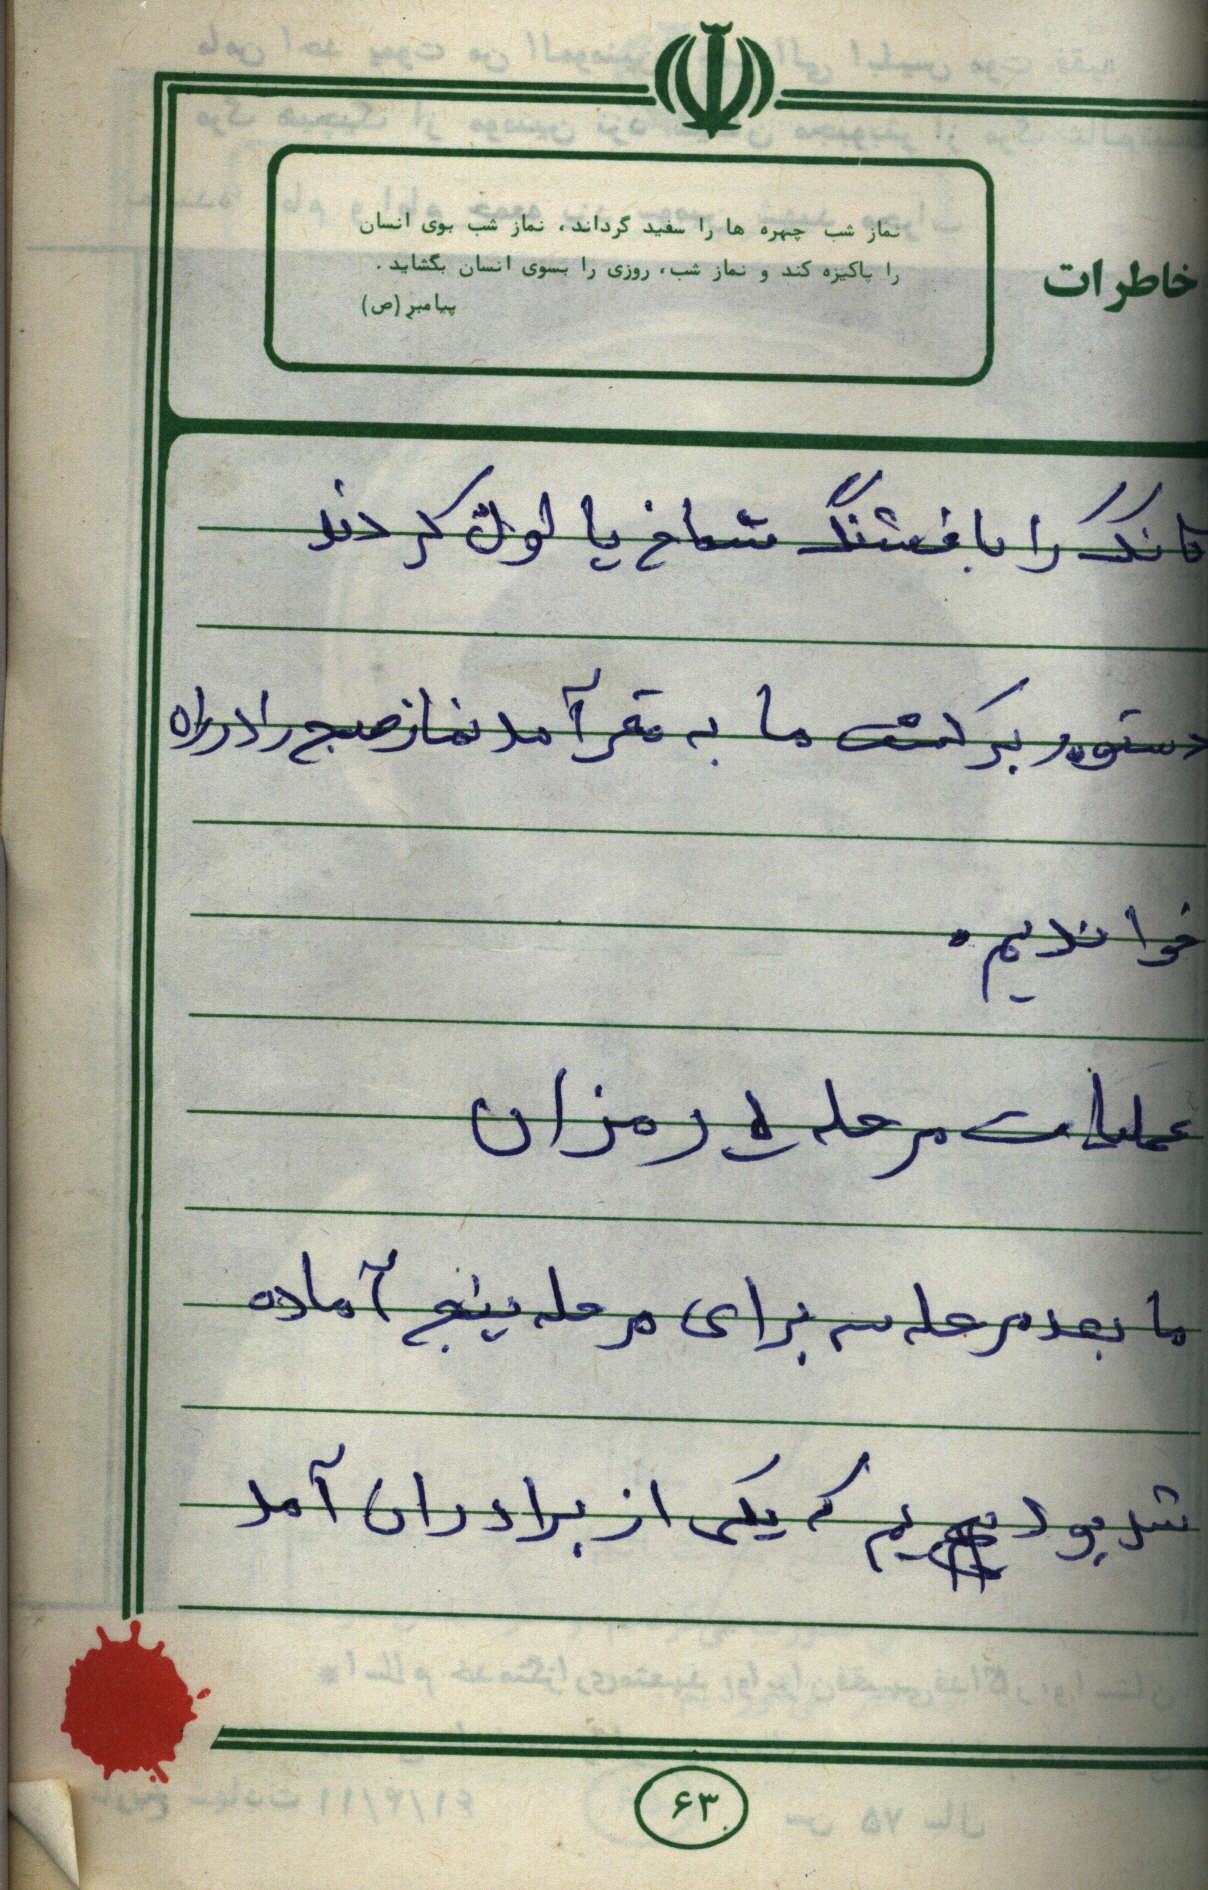 خاطرات
نماز شب چهره ها را سفید گرداند، نماز شب بوی انسان
را پاکیزه کند و نماز شب، روزی را بسوی انسان بگشاید.
پیامبر (ص)
تانک را با فشنگ سوراخ یا لول کردند
دستور برگشت ما به مقر آمد نماز صبح را در راه
خواندیم.
عملیات مرحله ۵ رمزان
ما بعد مرحله سه برای مرحله پنج آماده
شد بودیم که یکی از برادران آمد
۶۳